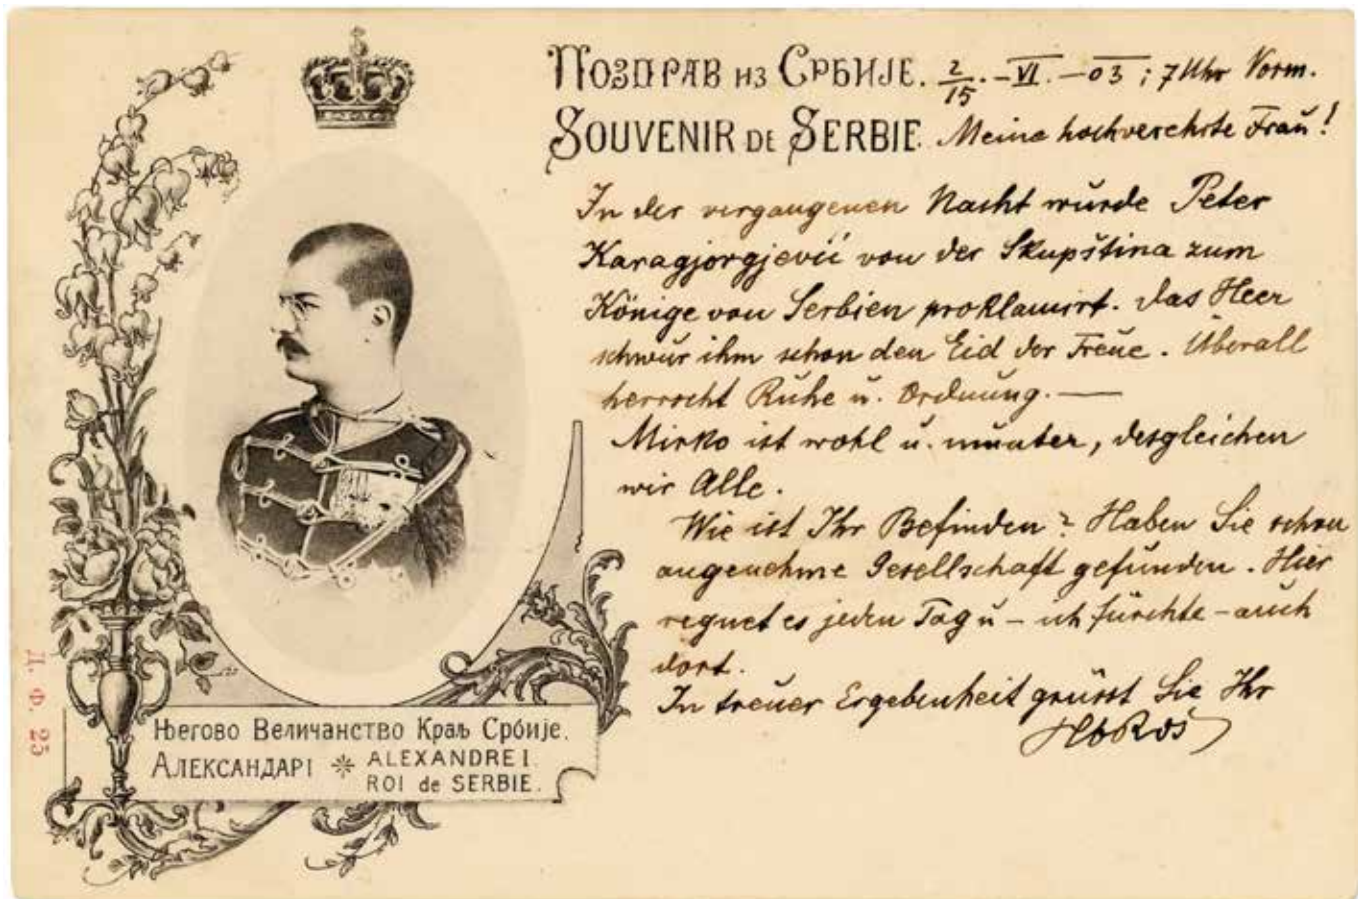 Поздрав из Србије.
Souvenir de Serbie.
2/15. - VI. - 03 ; 7 Uhr Vorm.
Meine hochverehrte Frau!
In der vergangenen Nacht wurde Peter
Karagjorgjević von der Skupština zum
Könige von Serbien proklamirt. Das Heer
schwur ihm schon den Eid der Treue. Überall
herrscht Ruhe u. Ordnung. —
Mirko ist wohl u. munter, desgleichen
wir Alle.
Wie ist Ihr Befinden? Haben Sie schon
angenehme Gesellschaft gefunden. Hier
regnet es jeden Tag u - ich fürchte - auch
dort.
In treuer Ergebenheit grüsst Sie Ihr
Његово Величанство Краљ Србије.
Александар I * ALEXANDRE I.
ROI de SERBIE.
Д. Ф. 25